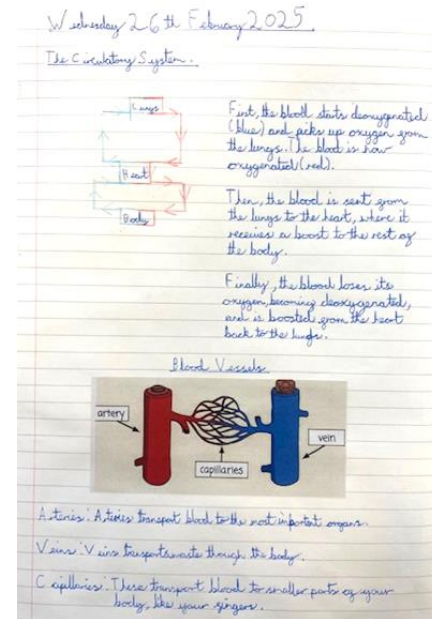 Wednesday 26th February 2025.
The Circulatory System.
Lungs
Heart
Body
First, the blood starts deoxygenated
(blue) and picks up oxygen from
the lungs. The blood is now
oxygenated (red).
Then, the blood is sent from
the lungs to the heart, where it
receives a boost to the rest of
the body.
Finally, the blood loses its
oxygen, becoming deoxygenated,
and is boosted from the heart
back to the lungs.
Blood Vessels.
artery
vein
capillaries
Arteries: Arteries transport blood to the most important organs.
Veins: Veins transports waste though the body.
Capillaries: These transport blood to smaller parts of your
body, like your fingers.